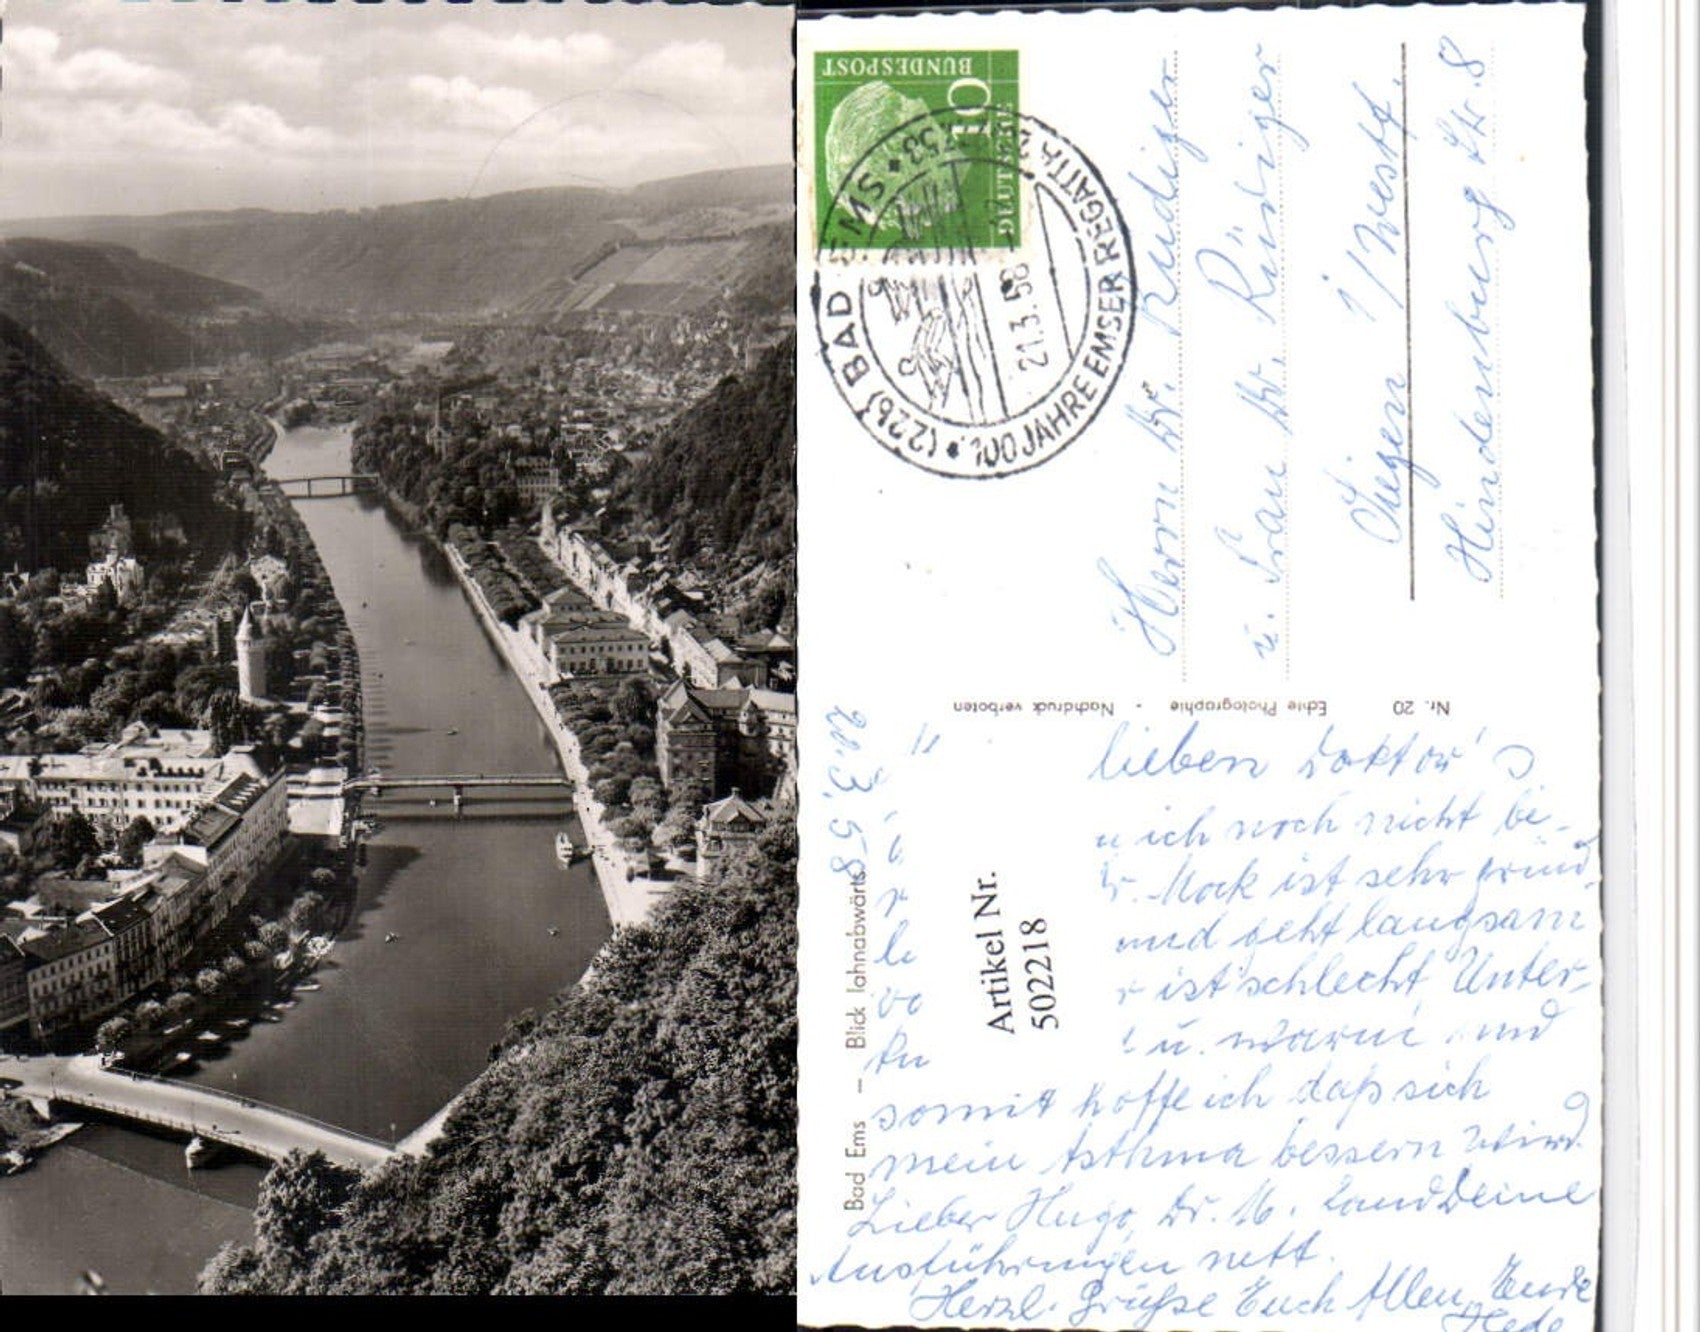 BUNDESPOST
10
DEUTSCHE
(22b) BAD EMS
753
100 JAHRE EMSER REGATTA
21.3.58
Herrn Dr. Rüdiger
u. Frau Dr. Rüdiger
Siegen i/Westf.
Hindenburg Str. 8
Nr. 20 Echte Photographie - Nachdruck verboten
Bad Ems — Blick lahnabwärts
Artikel Nr.
502218
20.3.58
lieben Doktor's
ich noch nicht bei-
Dr. Mock ist sehr gründ-
und geht langsam
ist schlecht, Unter-
u. warm und
somit hoffe ich daß sich
mein Asthma bessern wird.
Lieber Hugo, Dr. M. fand Deine
Ausführungen nett.
Herzl. Grüße Euch Allen, Eure
Hede